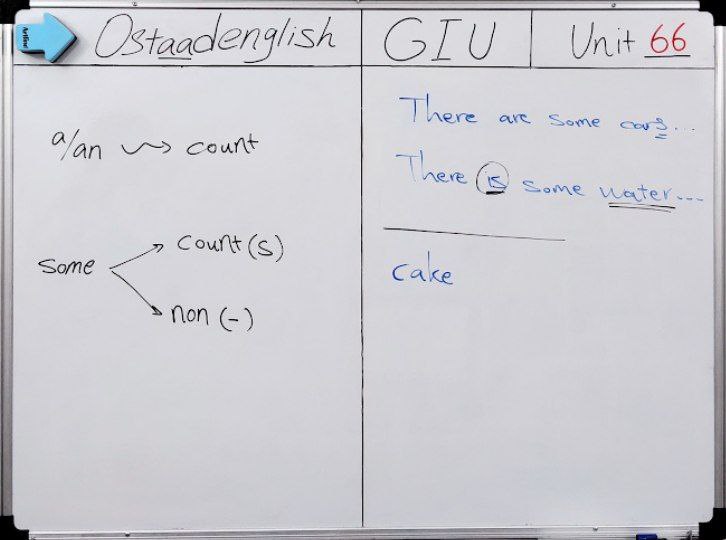 Artline
Ostaadenglish
GIU
Unit 66
a/an → count
some
count (s)
non (-)
There are some cars...
There is some water...
cake